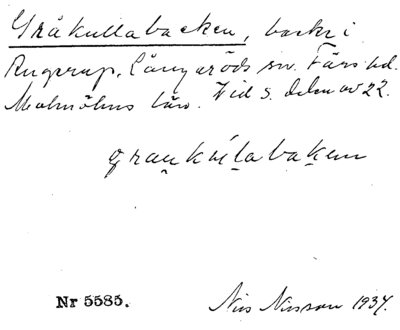 Gråkullabacken, backe i
Ringarap, Långaröds sn. Färs hd.
Malmöhus län. Vid S. delen av 22.
graukúlabaken
Nr 5585.
Nils Nilsson 1934.